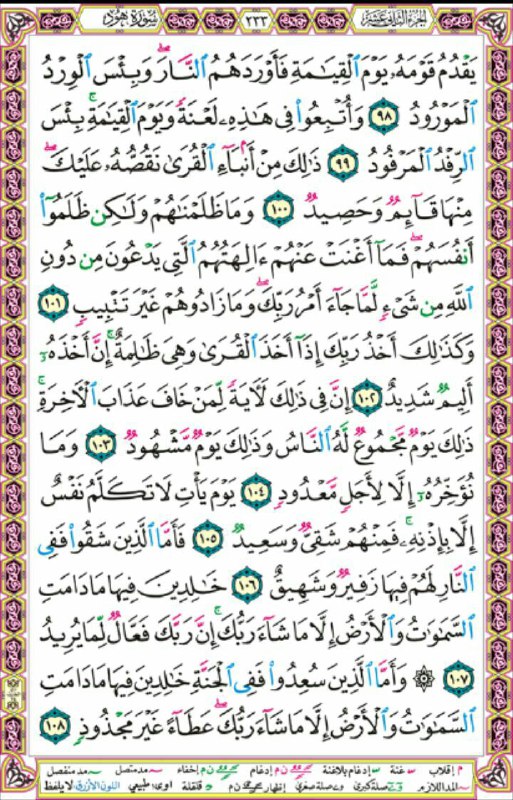 الجزء الثاني عشر ٢٣٣ سورة هود
يَقْدُمُ قَوْمَهُۥ يَوْمَ ٱلْقِيَـٰمَةِ فَأَوْرَدَهُمُ ٱلنَّارَ ۖ وَبِئْسَ ٱلْوِرْدُ
ٱلْمَوْرُودُ ٩٨ وَأُتْبِعُوا۟ فِى هَـٰذِهِۦ لَعْنَةً وَيَوْمَ ٱلْقِيَـٰمَةِ ۚ بِئْسَ
ٱلرِّفْدُ ٱلْمَرْفُودُ ٩٩ ذَٰلِكَ مِنْ أَنۢبَآءِ ٱلْقُرَىٰ نَقُصُّهُۥ عَلَيْكَ ۖ
مِنْهَا قَآئِمٌ وَحَصِيدٌ ١٠٠ وَمَا ظَلَمْنَـٰهُمْ وَلَـٰكِن ظَلَمُوٓا۟
أَنفُسَهُمْ ۖ فَمَآ أَغْنَتْ عَنْهُمْ ءَالِهَتُهُمُ ٱلَّتِى يَدْعُونَ مِن دُونِ
ٱللَّهِ مِن شَىْءٍ لَّمَّا جَآءَ أَمْرُ رَبِّكَ ۖ وَمَا زَادُوهُمْ غَيْرَ تَتْبِيبٍ ١٠١
وَكَذَٰلِكَ أَخْذُ رَبِّكَ إِذَآ أَخَذَ ٱلْقُرَىٰ وَهِىَ ظَـٰلِمَةٌ ۚ إِنَّ أَخْذَهُۥٓ
أَلِيمٌ شَدِيدٌ ١٠٢ إِنَّ فِى ذَٰلِكَ لَـَٔايَةً لِّمَنْ خَافَ عَذَابَ ٱلْـَٔاخِرَةِ ۚ
ذَٰلِكَ يَوْمٌ مَّجْمُوعٌ لَّهُ ٱلنَّاسُ وَذَٰلِكَ يَوْمٌ مَّشْهُودٌ ١٠٣ وَمَا
نُؤَخِّرُهُۥٓ إِلَّا لِأَجَلٍ مَّعْدُودٍ ١٠٤ يَوْمَ يَأْتِ لَا تَكَلَّمُ نَفْسٌ
إِلَّا بِإِذْنِهِۦ ۚ فَمِنْهُمْ شَقِىٌّ وَسَعِيدٌ ١٠٥ فَأَمَّا ٱلَّذِينَ شَقُوا۟ فَفِى
ٱلنَّارِ لَهُمْ فِيهَا زَفِيرٌ وَشَهِيقٌ ١٠٦ خَـٰلِدِينَ فِيهَا مَا دَامَتِ
ٱلسَّمَـٰوَٰتُ وَٱلْأَرْضُ إِلَّا مَا شَآءَ رَبُّكَ ۚ إِنَّ رَبَّكَ فَعَّالٌ لِّمَا يُرِيدُ
١٠٧ ۞ وَأَمَّا ٱلَّذِينَ سُعِدُوا۟ فَفِى ٱلْجَنَّةِ خَـٰلِدِينَ فِيهَا مَا دَامَتِ
ٱلسَّمَـٰوَٰتُ وَٱلْأَرْضُ إِلَّا مَا شَآءَ رَبُّكَ ۖ عَطَآءً غَيْرَ مَجْذُوذٍ ١٠٨
م إقلاب غنة إدغام بلاغنة ن م إدغام ن م إخفاء مد متصل مد منفصل
المد اللازم صلة كبرى صلة صغرى إظهار ن م قلقلة اوى طبيعي اللون الأزرق لا يلفظ